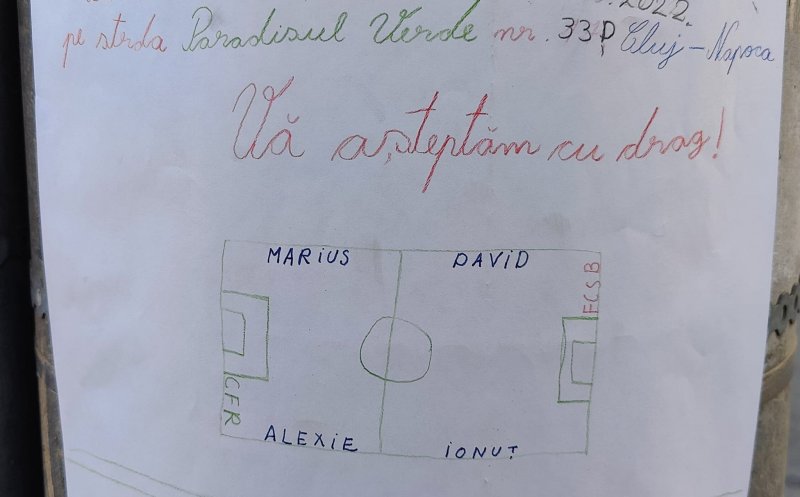 2022.
pe strda Paradisul Verde nr. 33P Cluj-Napoca
Vă așteptăm cu drag!
MARiUS DAViD
FCSB
CFR
ALEXiE iONUȚ